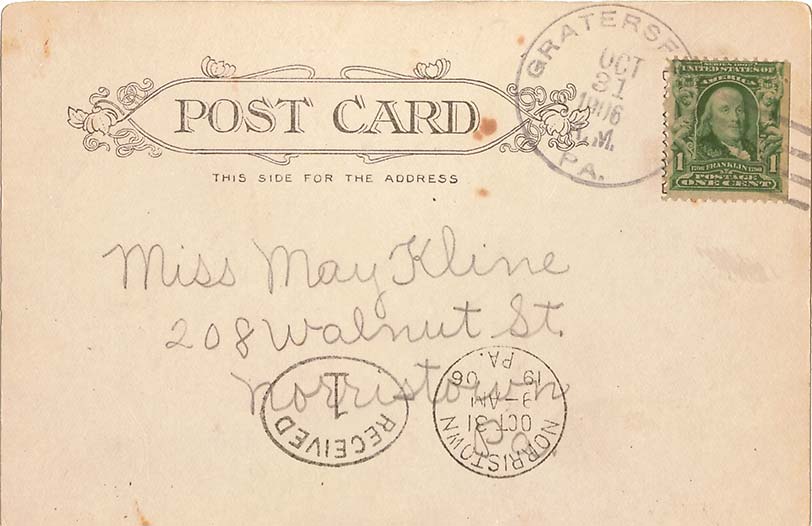 GRATERSF
OCT
31
1906
.M.
PA.
SERIES 1902
UNITED STATES OF
AMERICA
1 1706 FRANKLIN 1790 1
POSTAGE
ONE CENT
POST CARD
THIS SIDE FOR THE ADDRESS
Miss May Kline
208 Walnut St.
Norristown
Pa.
RECEIVED
1
NORRISTOWN
OCT 31
-AM
19 06
PA.